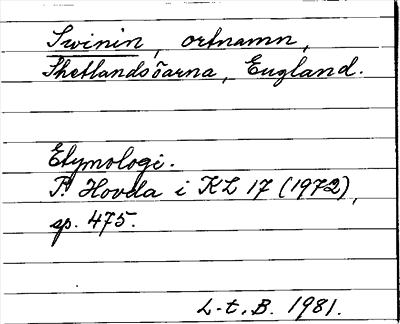 Swinin, ortnamn,
Shetlandsöarna, England.
Etymologi.
P. Hovda i KL 17 (1972),
sp. 475.
L-t. B. 1981.